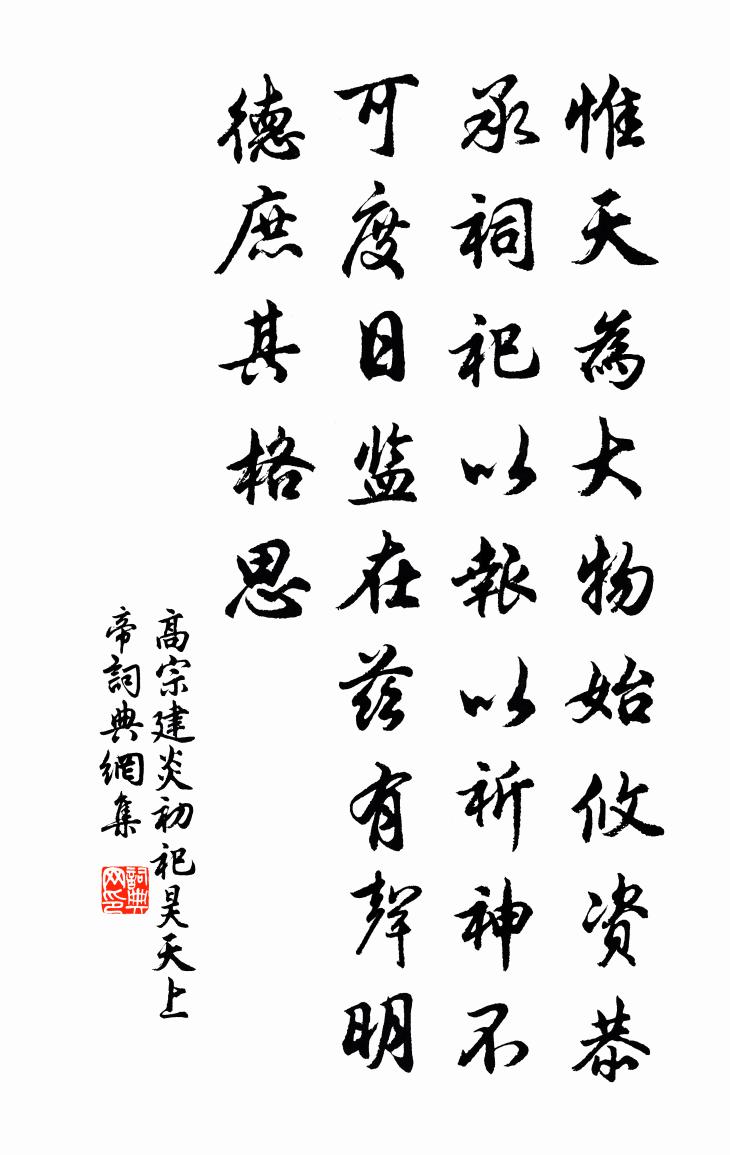 惟天為大物始攸资恭
承祠祀以報以祈神不
可度日监在兹有聲明
德庶其格思
高宗建炎初祀昊天上
帝詞典網集
詞典
网印